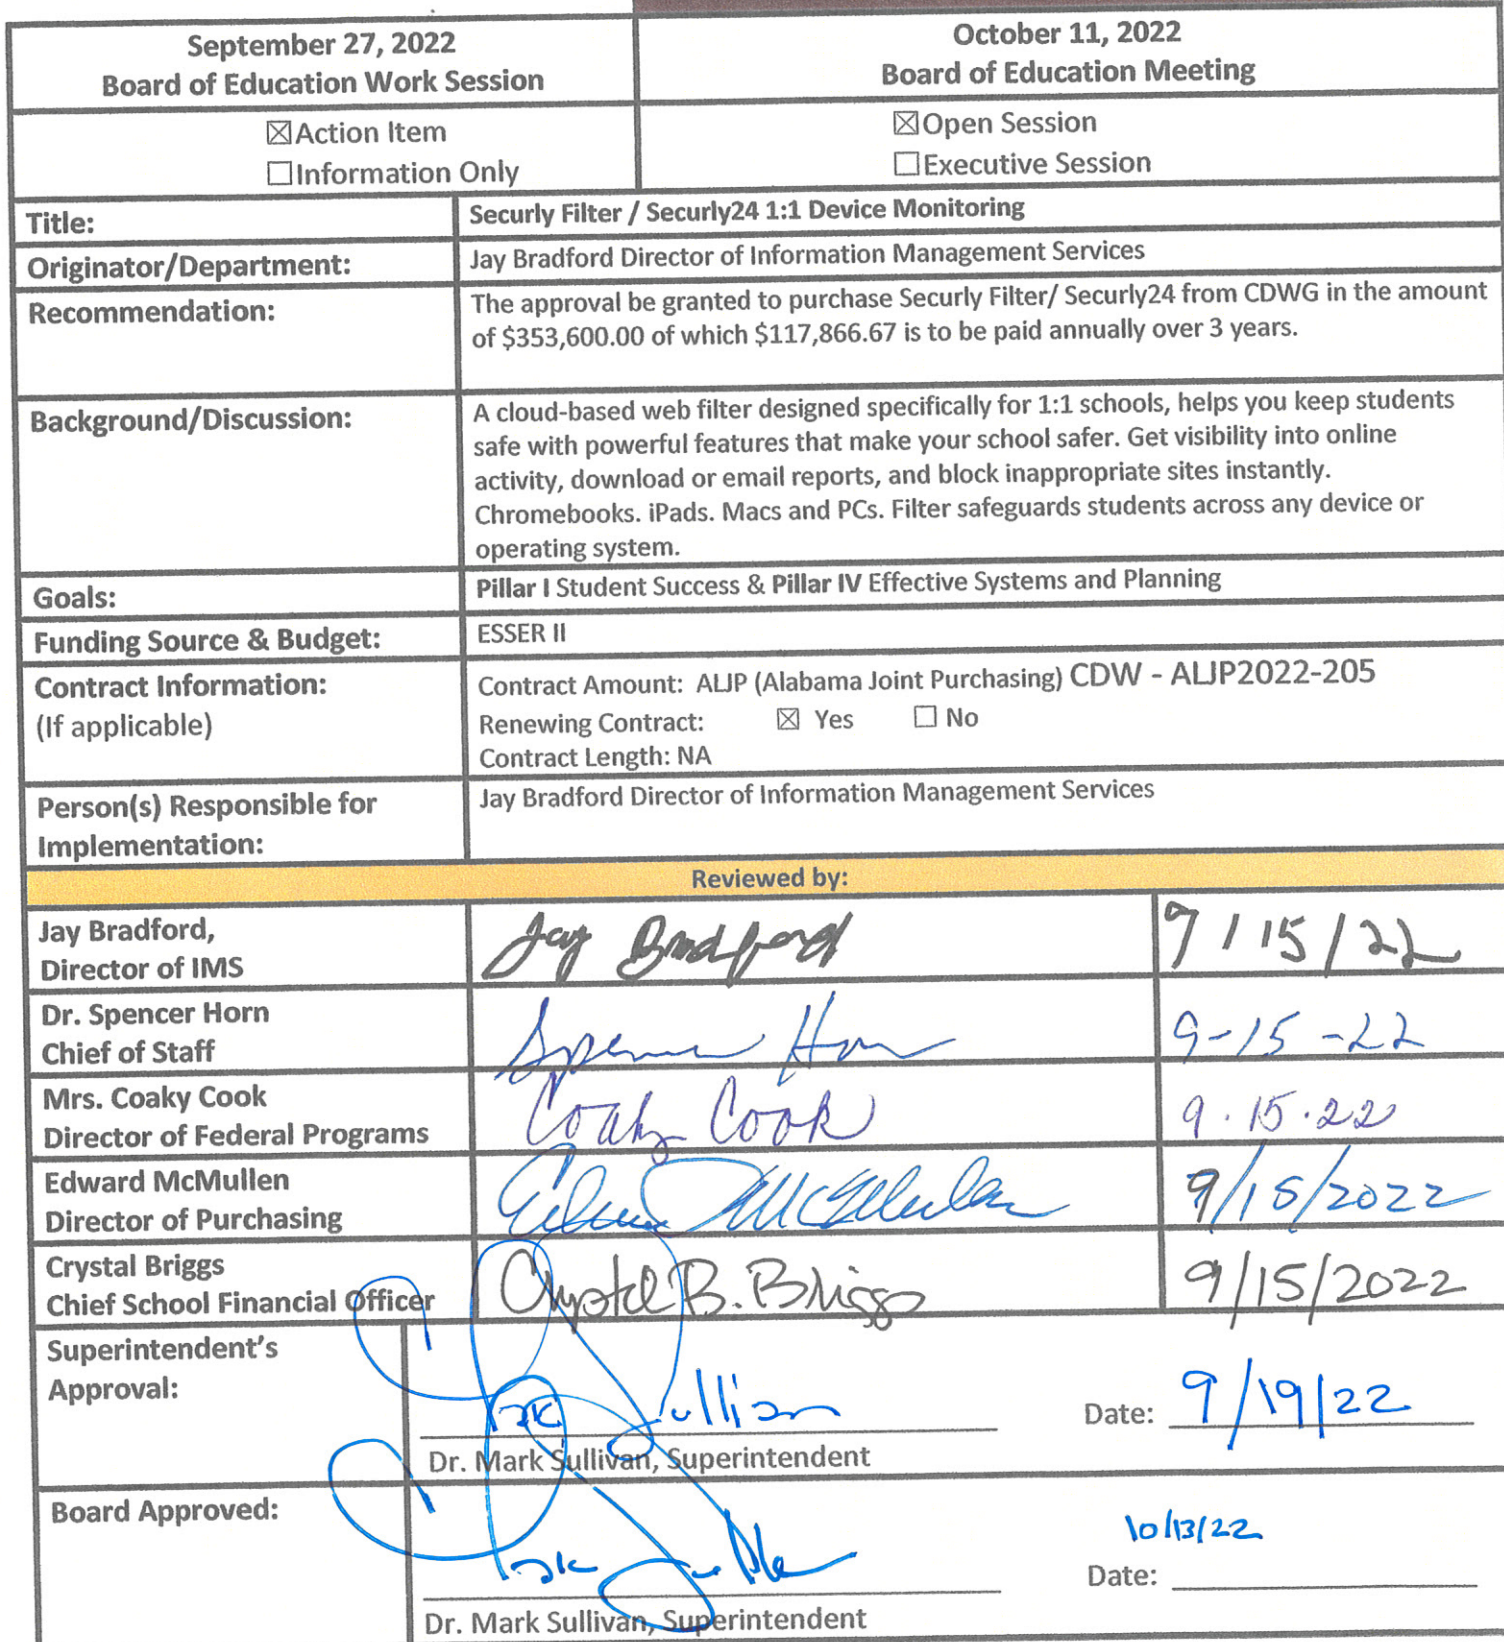 September 27, 2022
Board of Education Work Session
October 11, 2022
Board of Education Meeting
☒Action Item
☐Information Only
☒Open Session
☐Executive Session
Title:
Securly Filter / Securly24 1:1 Device Monitoring
Originator/Department:
Jay Bradford Director of Information Management Services
Recommendation:
The approval be granted to purchase Securly Filter/ Securly24 from CDWG in the amount
of $353,600.00 of which $117,866.67 is to be paid annually over 3 years.
Background/Discussion:
A cloud-based web filter designed specifically for 1:1 schools, helps you keep students
safe with powerful features that make your school safer. Get visibility into online
activity, download or email reports, and block inappropriate sites instantly.
Chromebooks. iPads. Macs and PCs. Filter safeguards students across any device or
operating system.
Goals:
Pillar I Student Success & Pillar IV Effective Systems and Planning
Funding Source & Budget:
ESSER II
Contract Information:
(If applicable)
Contract Amount: ALJP (Alabama Joint Purchasing) CDW - ALJP2022-205
Renewing Contract: ☒ Yes ☐ No
Contract Length: NA
Person(s) Responsible for
Implementation:
Jay Bradford Director of Information Management Services
Reviewed by:
Jay Bradford,
Director of IMS
Jay Bradford
9/15/22
Dr. Spencer Horn
Chief of Staff
Spencer Horn
9-15-22
Mrs. Coaky Cook
Director of Federal Programs
Coaky Cook
9.15.22
Edward McMullen
Director of Purchasing
Edward McMullen
9/15/2022
Crystal Briggs
Chief School Financial Officer
Crystal B. Briggs
9/15/2022
Superintendent's
Approval:
Mark Sullivan
Date: 9/19/22
Dr. Mark Sullivan, Superintendent
Board Approved:
10/13/22
Date:
Dr. Mark Sullivan, Superintendent